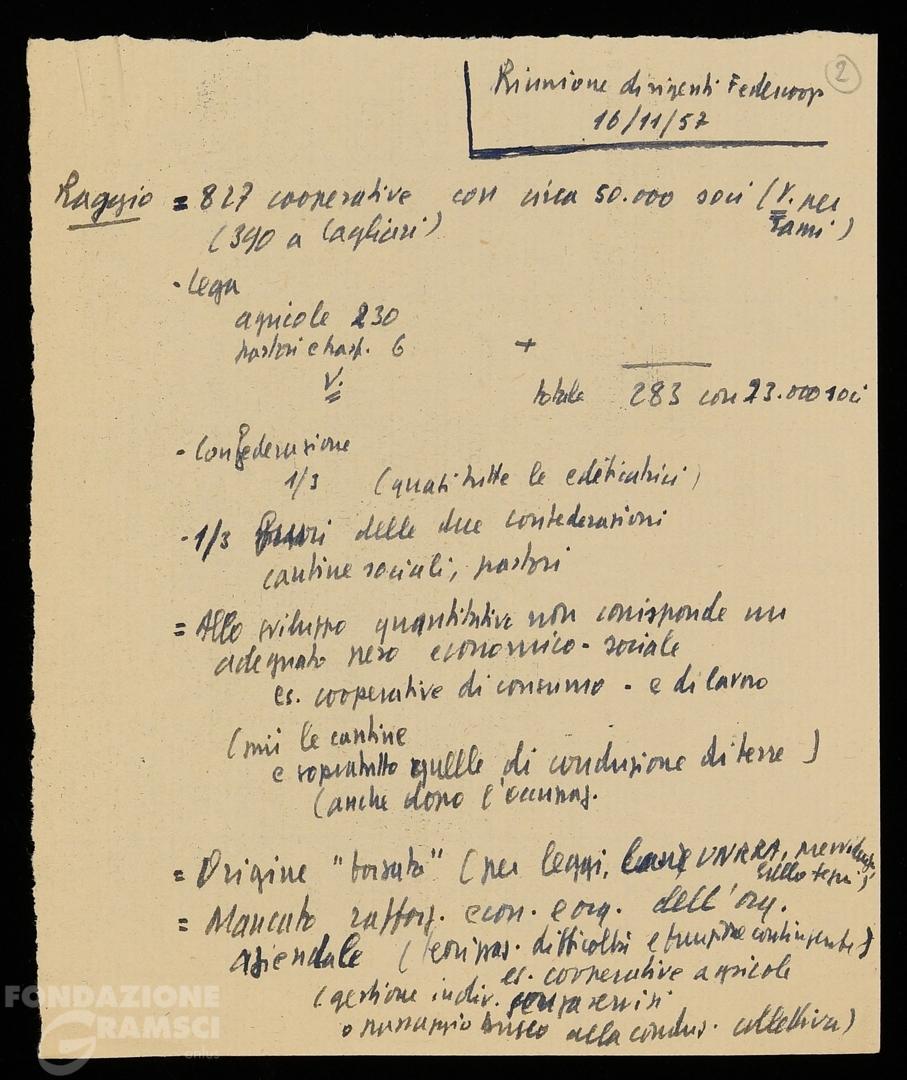 2
Riunione dirigenti Federcoop
16/11/57
Raggio = 827 cooperative con circa 50.000 soci (V. per
rami)
(390 a Cagliari)
- Lega
agricole 230
pastori e trasf. 6 +
V.
totale 283 con 23.000 soci
- Confederazione
1/3 (quasi tutte le edificatrici)
- 1/3 fuori delle due confederazioni
cantine sociali, pastori
= Allo sviluppo quantitativo non corrisponde un
adeguato peso economico-sociale
es. cooperative di consumo - e di lavoro
(più le cantine
e sopratutto quelle di conduzione di terre)
(anche dopo l'occupaz.
= Origine "forzata" (per leggi, UNRRA,
sulle terre)
= Mancato rafforz. econ. e org. dell'org.
aziendale ( difficoltà e funzione contingente)
es. cooperative agricole
(gestione indiv. senza servizi
o passaggio brusco alla conduz. collettiva)
FONDAZIONE
GRAMSCI
onlus